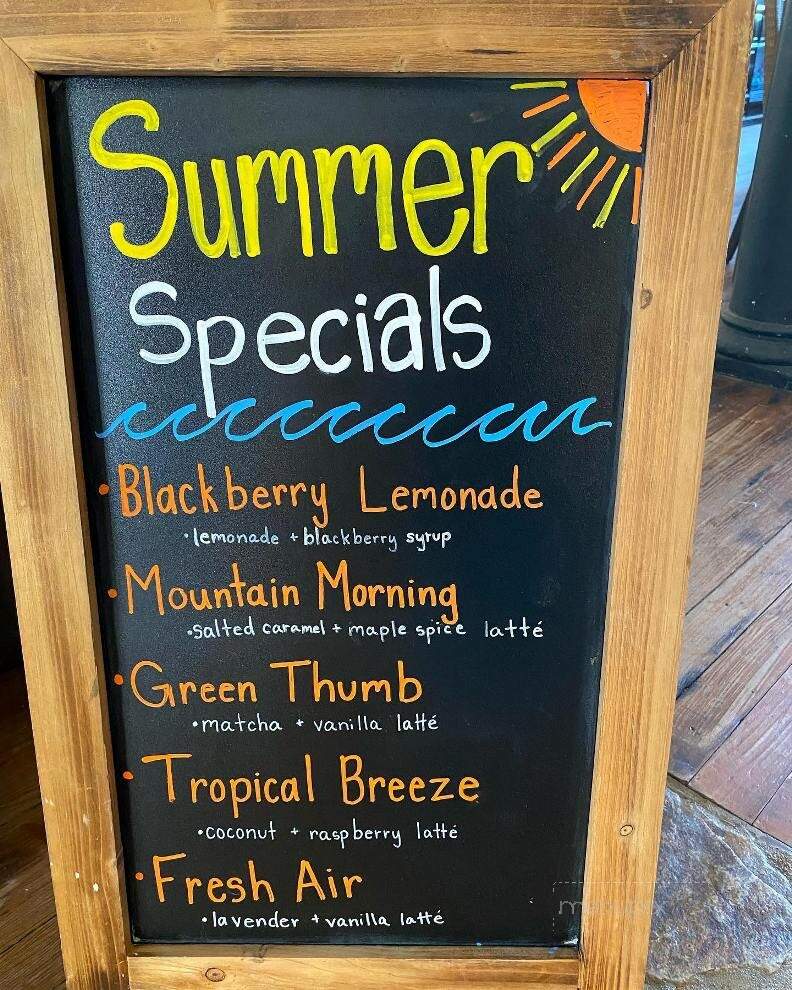 Summer
Specials
•Blackberry Lemonade
•lemonade + blackberry syrup
•Mountain Morning
•Salted caramel + maple spice latté
•Green Thumb
•matcha + vanilla latté
•Tropical Breeze
•coconut + raspberry latté
•Fresh Air
•lavender + vanilla latté